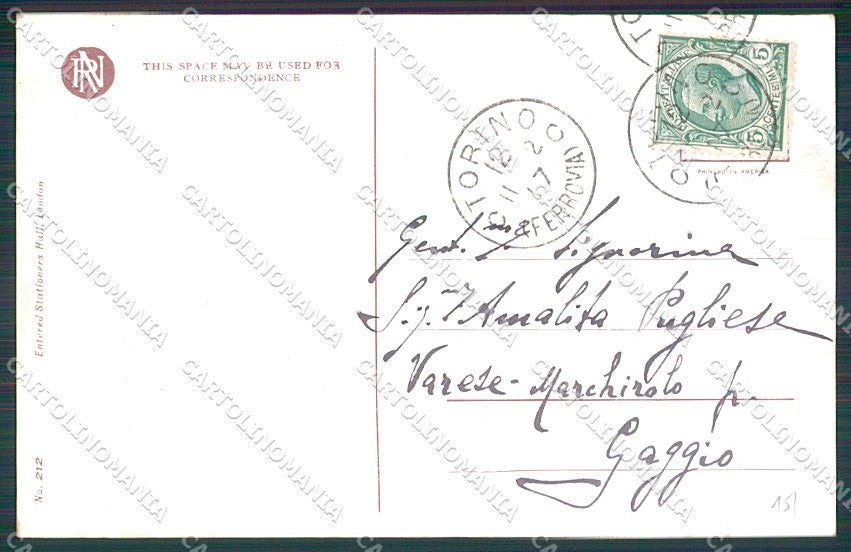 RN
THIS SPACE MAY BE USED FOR
CORRESPONDENCE
5
5
PRINTED IN AMERICA
TORINO
(FERROVIA)
12
11 2
Gent.ma Signorina
Sig.na Amalita Pugliese
Varese - Marchirolo p.
Gaggio
Entered Stationers Hall, London
No. 212
15/
CARTOLINOMANIA